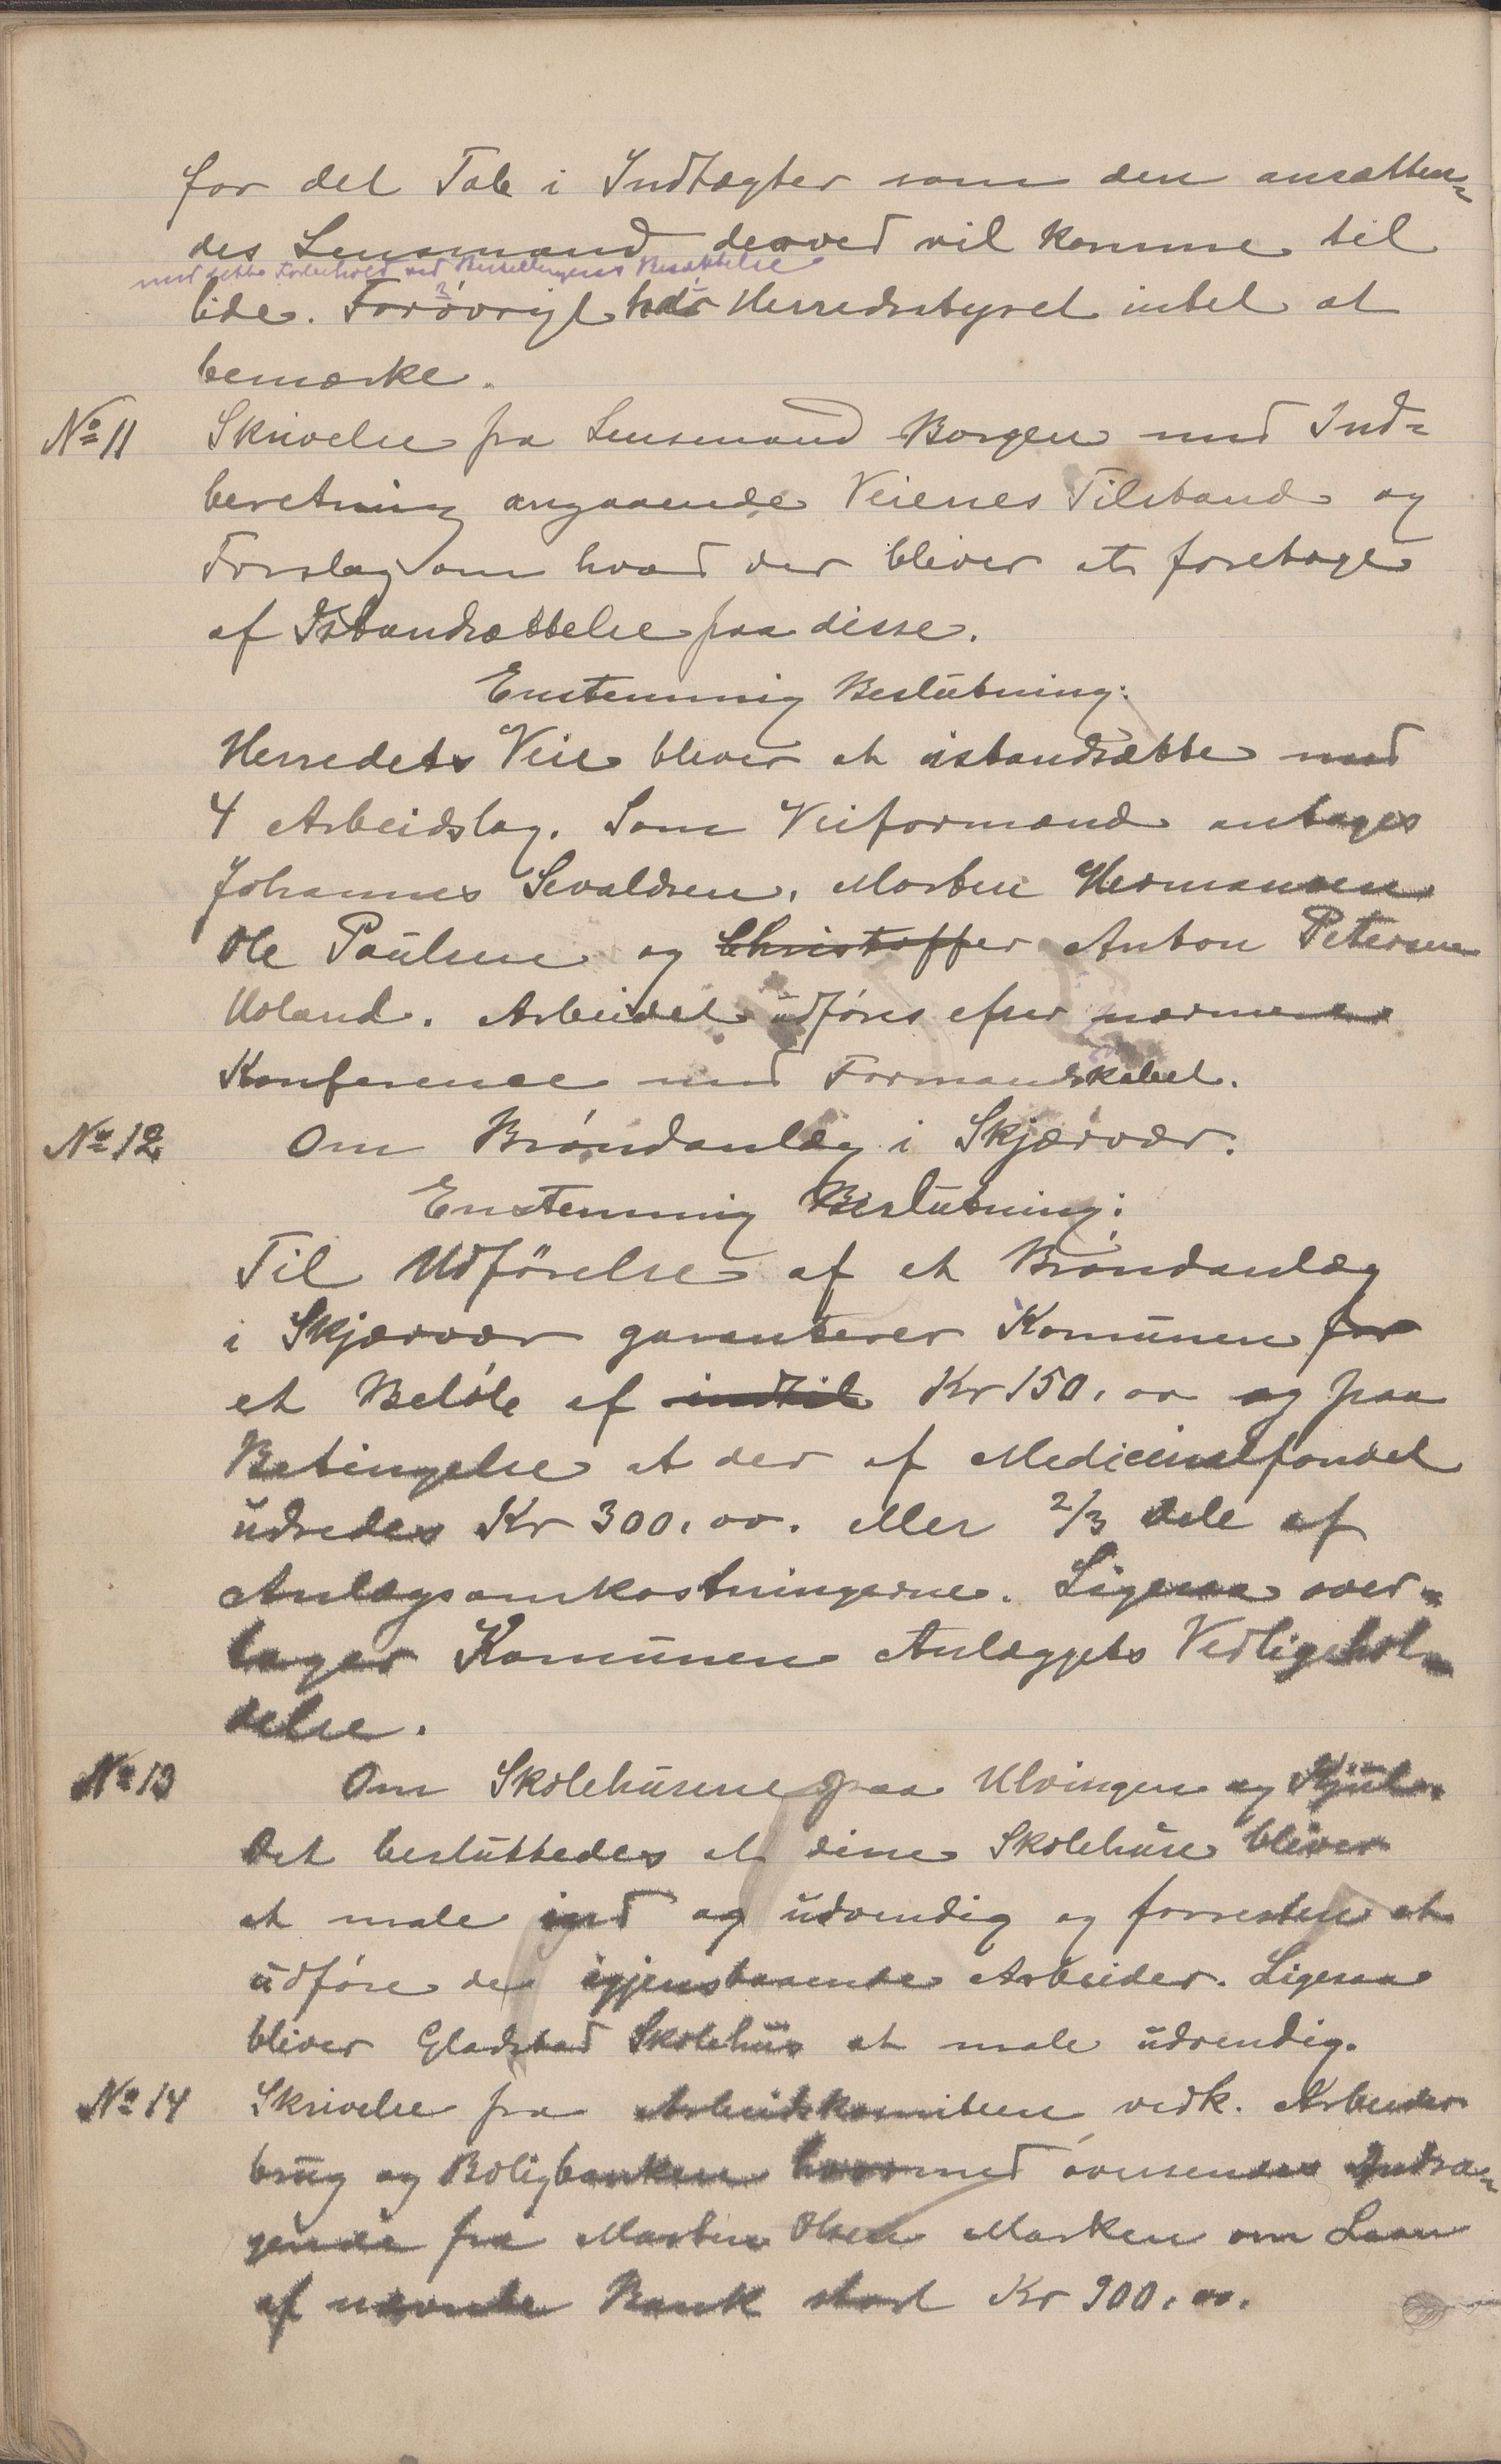 for det Tab i Indtægter som den ansætten=
des Lensmand derved vil komme til
med dette Forbehold ved Bestillingens Besættelse
lide. Forøvrigt har Herredsstyret intet at
bemærke.
No 11 Skrivelse fra Lensmand Borgen med Ind=
beretning angaaende Veienes Tilstand og
Forslag om hvad der bliver at foretage
af Istandsættelse paa disse.
Enstemmig Beslutning:
Herredets Veie bliver at istandsætte med
4 Arbeidslag. Som Veiformænd antages
Johannes Sevaldsen, Morten Hermansen
Ole Paulsen og Christoffer Anton Petersen
Holand. Arbeidet udføres efter nærmere
Konference med Formandskabet.
No 12 Om Brøndanlæg i Skjærvær.
Enstemmig Beslutning:
Til Udførelse af et Brøndanlæg
i Skjærvær garanterer Komunen for
et Beløb af indtil Kr 150,00 og paa
Betingelse at der af Medicinalfondet
udredes Kr 300,00. eller 2/3 Dele af
Anlægsomkostningerne. Ligesaa over=
tager Komunen Anlæggets Vedligehol=
delse.
No 13 Om Skolehusene paa Ulvingen og
Det besluttedes at disse Skolehuse bliver
at male ind og udvendig og forresten at
udføre de igjenstaaende Arbeider. Ligesaa
bliver Gladstad Skolehus at male udvendig.
No 14 Skrivelse fra Arbeidskomiteen vedk. Arbeider
brug og Boligbanken hvormed oversendes Andra=
gende fra Martin Olsen Marken om Laan
af nævnte Bank stort Kr 900,00.